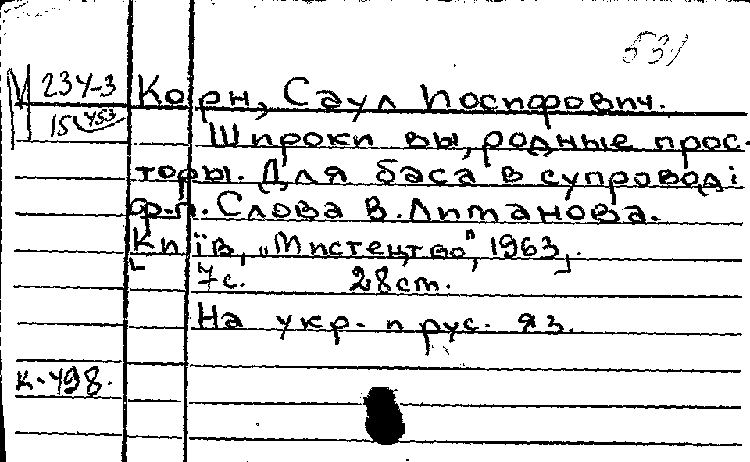 531
М 234-3
15 453
Корн, Саул Иосифович.
Широки вы, родные прос-
торы. Для баса в супроводі
ф.-п. Слова В. Литанова.
Київ, „Мистецтво", 1963,.
7 с. 28 ст.
На укр. и рус. яз.
К-498.